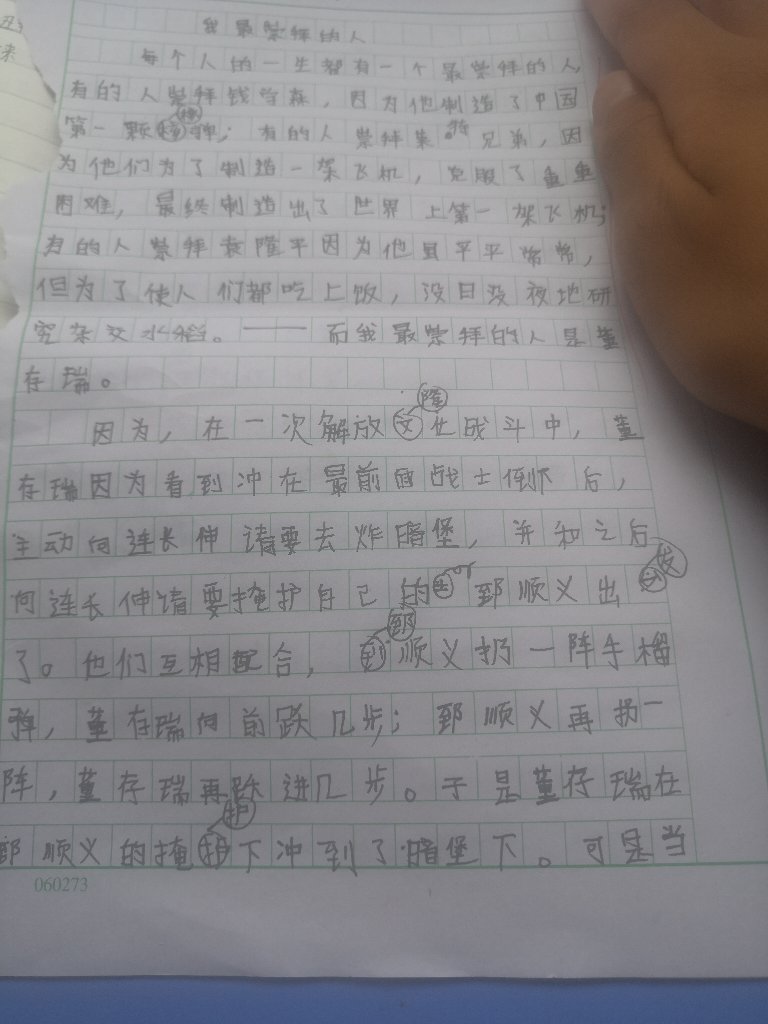 我最崇拜的人
每个人的一生都有一个最崇拜的人,
有的人崇拜钱学森,因为他制造了中国
第一颗核弹;有的人崇拜莱特兄弟,因
为他们为了制造一架飞机,克服了重重
困难,最终制造出了世界上第一架飞机;
有的人崇拜袁隆平因为他虽平平常常,
但为了使人们都吃上饭,没日没夜地研
究杂交水稻。——而我最崇拜的人是董
存瑞。
因为,在一次解放隆化战斗中,董
存瑞因为看到冲在最前的战士倒下后,
主动向连长伸请要去炸暗堡,并和之后
向连长伸请要掩护自己的郅顺义出发
了。他们互相配合,郅顺义扔一阵手榴
弹,董存瑞向前跃几步;郅顺义再扔一
阵,董存瑞再跃进几步。于是董存瑞在
郅顺义的掩护下冲到了暗堡下。可是当
060273